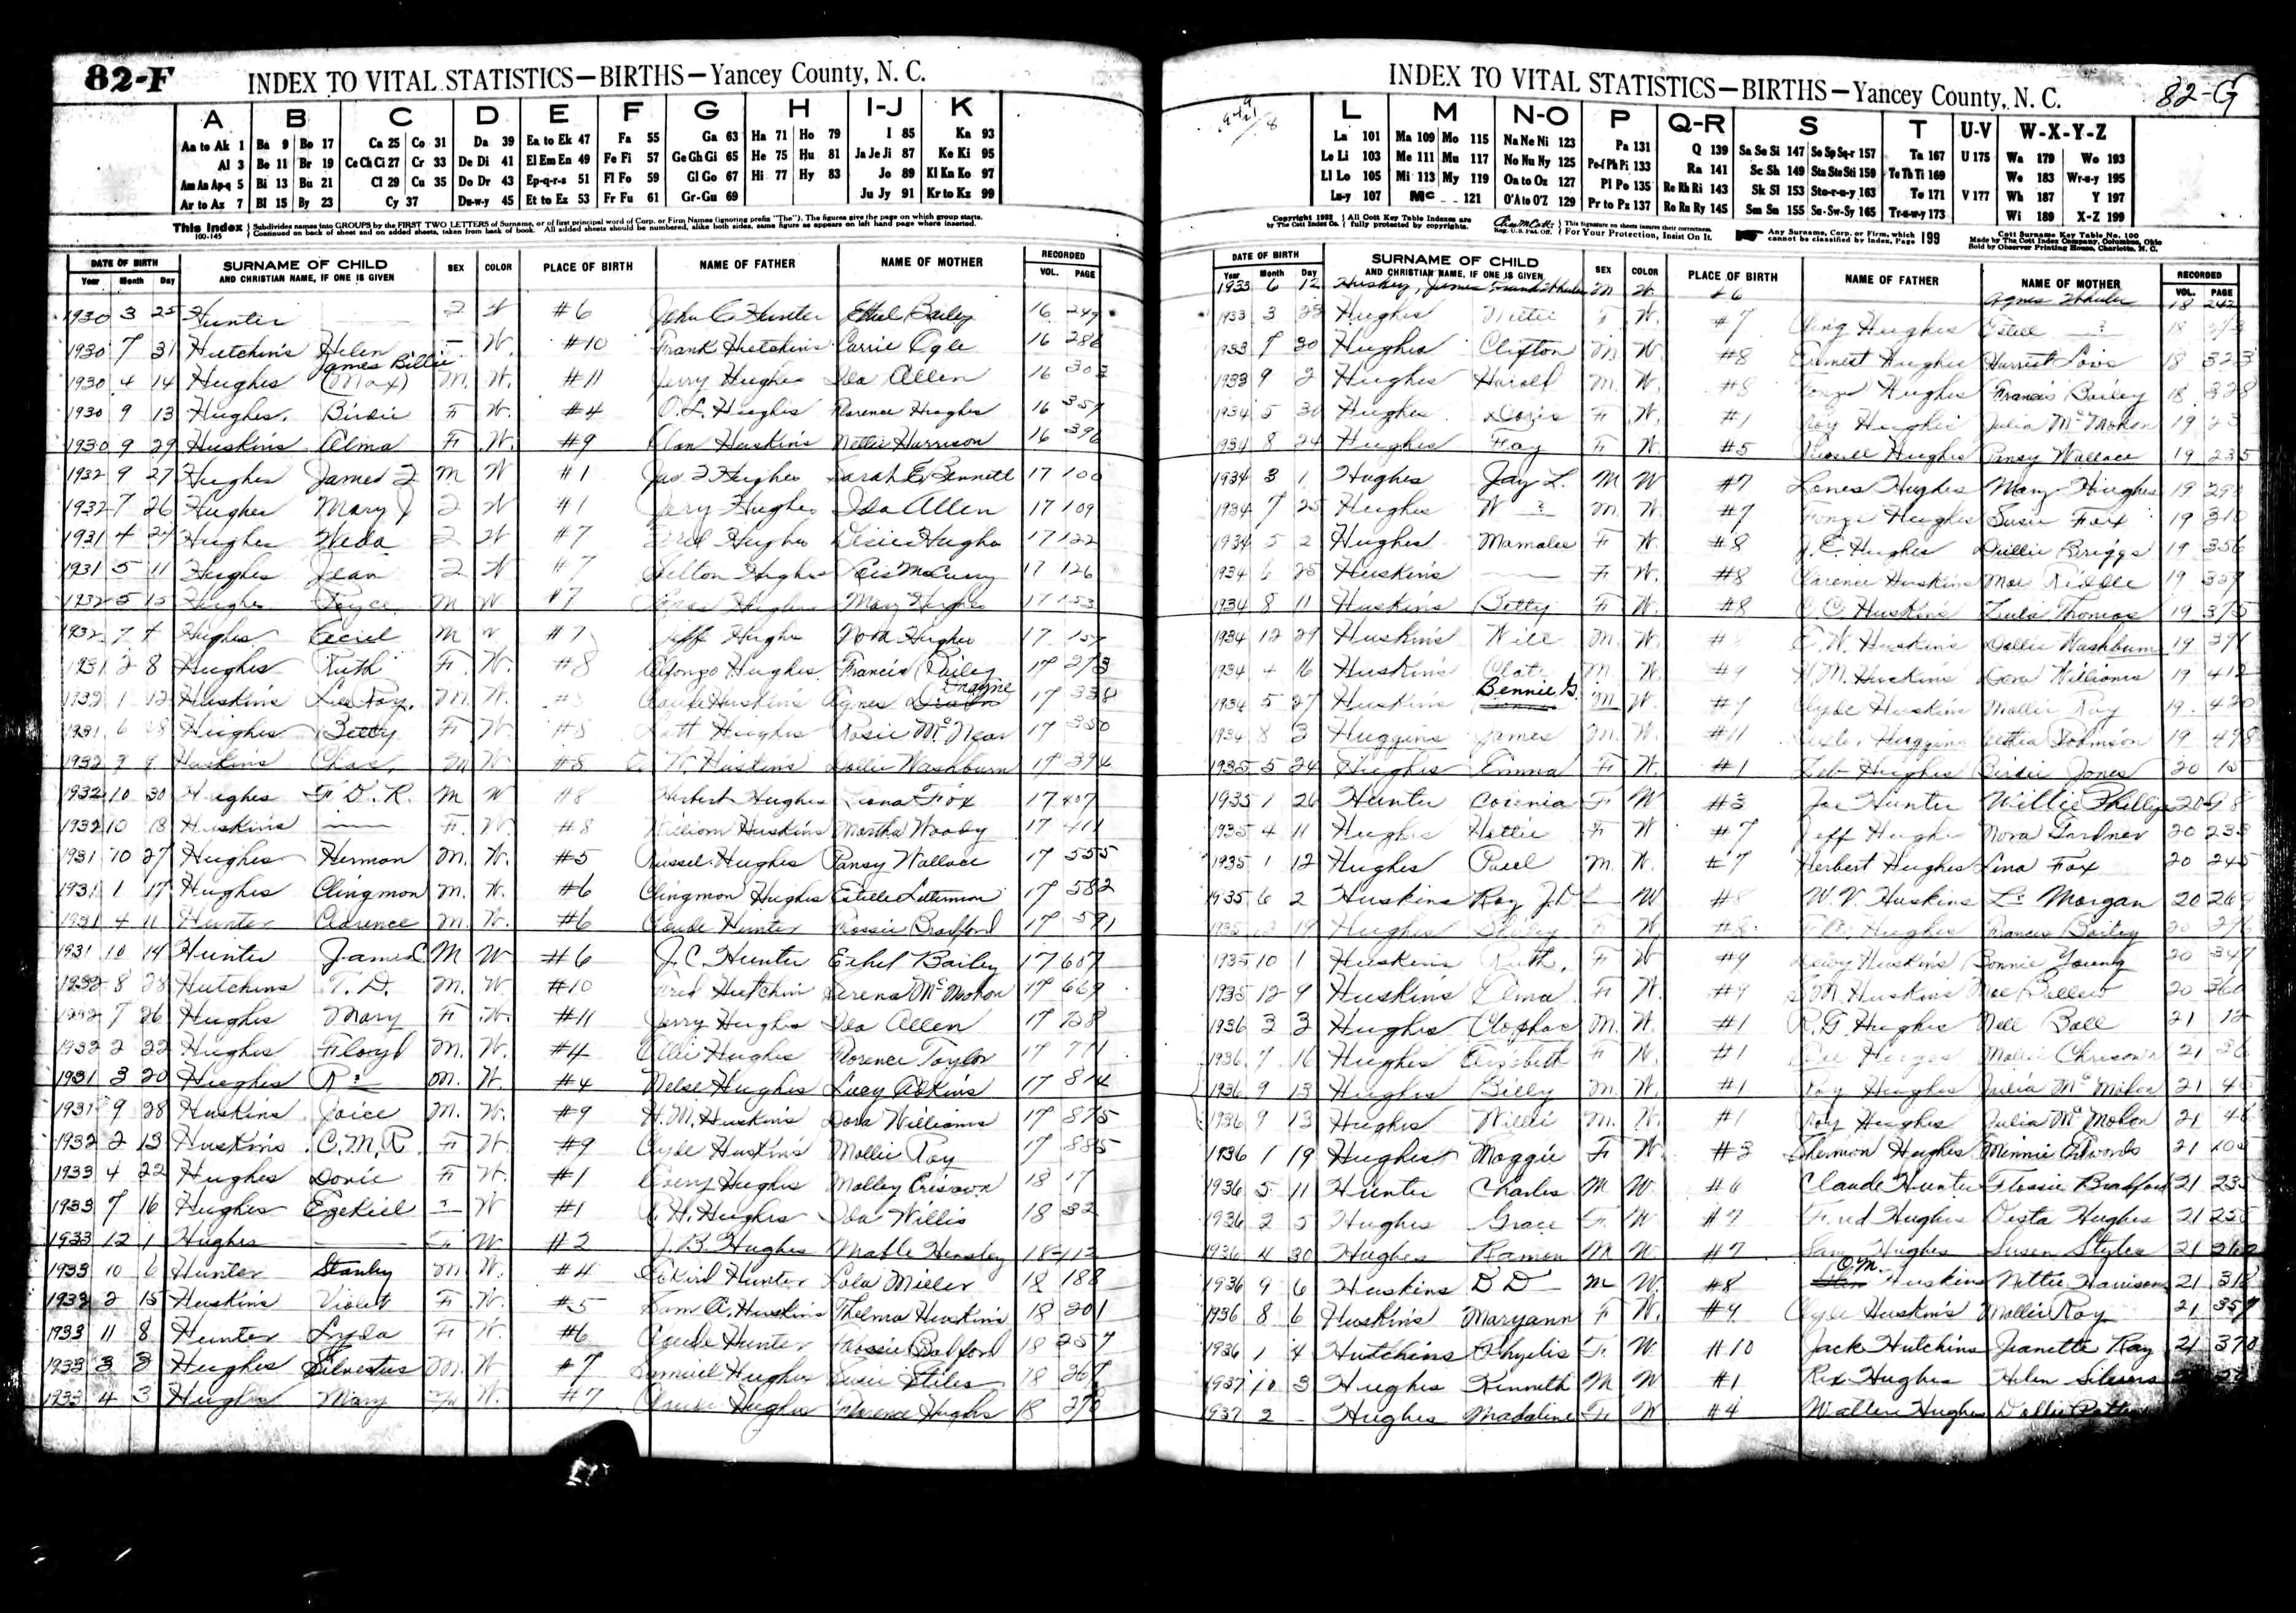 82-F
INDEX TO VITAL STATISTICS—BIRTHS—Yancey County, N. C.
A B C D E F G H I-J K
Aa to Ak 1 Ba 9 Bo 17 Ca 25 Co 31 Da 39 Ea to Ek 47 Fa 55 Ga 63 Ha 71 Ho 79 I 85 Ka 93
Al 3 Be 11 Br 19 Ce Ch Ci 27 Cr 33 De Di 41 El Em En 49 Fe Fi 57 Ge Gh Gi 65 He 75 Hu 81 Ja Je Ji 87 Ke Ki 95
Am An Ap-q 5 Bi 13 Bu 21 Cl 29 Cu 35 Do Dr 43 Ep-q-r-s 51 Fl Fo 59 Gl Go 67 Hi 77 Hy 83 Jo 89 Kl Kn Ko 97
Ar to Az 7 Bl 15 By 23 Cy 37 Du-w-y 45 Et to Ez 53 Fr Fu 61 Gr-Gu 69 Ju Jy 91 Kr to Kz 99
This Index Subdivides names into GROUPS by the FIRST TWO LETTERS of Surname, or of first principal word of Corp. or Firm Names (ignoring prefix "The"). The figures give the page on which group starts.
100-145 Continued on back of sheet and on added sheets, taken from back of book. All added sheets should be numbered, alike both sides, same figure as appears on left hand page where inserted.
DATE OF BIRTH SURNAME OF CHILD SEX COLOR PLACE OF BIRTH NAME OF FATHER NAME OF MOTHER RECORDED
Year Month Day AND CHRISTIAN NAME, IF ONE IS GIVEN VOL. PAGE
1930 3 25 Hunter #6 John C Hunter Ethel Bailey 16 249
1930 7 31 Hutchins Helen F W. #10 Frank Hutchins Carrie Ogle 16 286
James Billie
1930 4 14 Hughes (Max) M. W. #11 Jerry Hughes Ida Allen 16 303
1930 9 13 Hughes. Birdie F W. #4 O. L. Hughes Florence Hughes 16 357
1930 9 29 Huskins Alma F. W. #9 Huskins Nettie Harrison 16 396
1932 9 27 Hughes James M W #1 Hughes Sarah E Bennett 17 100
1932 7 26 Hughes Mary J W #1 Jery Hughes Ida Allen 17 109
1931 4 24 Hughes Neda W #7 Fred Hughes Hughes 17 122
1931 5 11 Hughes Jean W #7 Hughes McCurry 17 126
1932 5 15 Hughes Royce M W #7 Hughes Mary Hughes 17 153
1932 7 Hughes Ceciel M W #7 Jeff Hughes Nora Hughes 17
1931 2 8 Hughes Ruth F. W. #8 Alfonzo Hughes Francis Bailey 17 273
1932 1 12 Huskins Lee Roy. M. W. #8 Claude Huskins Agnes Drayne 17 338
1931 6 Hughes Betty F W. #8 Hughes Rosie McNear 17 350
1932 9 Huskins Chas. M W. #8 W. Huskins Dollie Washburn 17 394
1932 10 30 Hughes F. D. R. M W #8 Herbert Hughes Fox 17 407
1932 10 18 Huskins F. W. #8 William Huskins Martha Wooby 17 411
1931 10 27 Hughes Herman M. W. #5 Russel Hughes Pansy Wallace 17 555
1931 1 17 Hughes Clingmon M. W. #6 Clingmon Hughes Estelle 17 582
1931 4 11 Hunter Clarence M. W. #6 Claude Hunter Bradford 17 591
1931 10 14 Hunter James C M W #6 J. C. Hunter Ethel Bailey 17 607
1932 8 28 Hutchins T. D. M. W. #10 Fred Hutchin Serena McMohon 17 669
1932 7 26 Hughes Mary F. W. #11 Jerry Hughes Ida Allen 17 728
1932 2 22 Hughes Floryd M. W. #4 Ollie Hughes Florence Taylor 17 771
1931 3 20 Hughes R ? M. W. #4 Nelse Hughes Lucy Adkins 17 814
1931 9 28 Huskins Joice M. W. #9 H. M. Huskins Dora Williams 17 875
1932 2 13 Huskins C. M. R. F. W. #9 Clyde Huskins Mollie Ray 17 885
1933 4 22 Hughes Dovie F. W. #1 Hughes Molley Crisown 18 17
1933 7 16 Hughes Ezekiel W #1 H. Hughes Ida Willis 18 32
1933 12 1 Hughes F W #2 J. B. Hughes Mable Hensley 18 113
1933 10 6 Hunter Stanley M W. #4 Hunter Lola Miller 18 188
1933 2 15 Huskins Violet F. W. #5 Sam A. Huskins Thelma Huskins 18 201
1933 11 8 Hunter Lyda F. W. #6 Claude Hunter 18 257
1933 3 3 Hughes Silvestus M. W #7 Samuel Hughes Susie Stiles 18 267
1933 4 3 Hughes Mary W. #7 Hughes Florence Hughes 18
INDEX TO VITAL STATISTICS—BIRTHS—Yancey County, N. C.
82-G
L M N-O P Q-R S T U-V W-X-Y-Z
La 101 Ma 109 Mo 115 Na Ne Ni 123 Pa 131 Q 139 Sa Se Si 147 So Sp Sq-r 157 Ta 167 U 175 Wa 179 Wo 193
Le Li 103 Me 111 Mu 117 No Nu Ny 125 Pe-f Ph Pi 133 Ra 141 Sc Sh 149 Sta Ste Sti 159 Te Th Ti 169 We 183 Wr-u-y 195
Ll Lo 105 Mi 113 My 119 Oa to Oz 127 Pl Po 135 Re Rh Ri 143 Sk Sl 153 Sto-r-u-y 163 To 171 V 177 Wh 187 Y 197
Lu-y 107 Mc 121 O'A to O'Z 129 Pr to Pz 137 Ro Ru Ry 145 Sm Sn 155 Su-Sw-Sy 165 Tr-u-w-y 173 Wi 189 X-Z 199
Copyright 1932 by The Cott Index Co. All Cott Key Table Indexes are fully protected by copyrights. Reg. U.S. Pat. Off. This signature on sheets insures their correctness. For Your Protection, Insist On It. Any Surname, Corp. or Firm, which cannot be classified by Index, Page 199
Cott Surname Key Table No. 100 Made by The Cott Index Company, Columbus, Ohio Sold by Observer Printing House, Charlotte, N. C.
DATE OF BIRTH SURNAME OF CHILD SEX COLOR PLACE OF BIRTH NAME OF FATHER NAME OF MOTHER RECORDED
Year Month Day AND CHRISTIAN NAME, IF ONE IS GIVEN VOL. PAGE
1933 6 12 Huskey, James Frank Wheeler M W. #6 Agnes Wheeler 18 242
1933 3 Hughes F. W. #7 Hughes Estell ? 18
1933 7 30 Hughes Clifton M W #8 Earnest Hughes 18 323
1933 9 2 Hughes Harold M. W. #8 Hughes Francis Bailey 18 328
1934 5 30 Hughes Doris F. W. #1 Roy Hughes Julia McMohon 19 23
1934 8 24 Hughes Fay F W. #5 Russell Hughes Pansy Wallace 19 235
1934 3 1 Hughes Jay L. M W #7 Lones Hughes Mary Hughes 19
1934 7 25 Hughes ? M. W. #7 Hughes Susie Fox 19 310
1934 5 2 Hughes Mamalee F W. #8 J. E. Hughes Briggs 19 356
1934 6 25 Huskins F. W. #8 Clarence Huskins Mae Riddle 19 357
1934 8 11 Huskins Betty F W. #8 C. C. Huskins Lula Thomas 19 375
1934 12 29 Huskins Will M. W. # W. Huskins Dollie Washburn 19 391
1934 4 16 Huskins M. W #9 H M. Huskins Dora Williams 19 412
1934 5 27 Huskins Bennie G. M W. #9 Clyde Huskins Mollie Ray 19 420
1934 8 3 Huggins James M. W. #11 Huggins Robinson 19 498
1935 5 24 Hughes Emma F W. #1 Zeb Hughes Birdie Jones 20 15
1935 1 26 Hunter F W #3 Joe Hunter Willie Phillips 20 98
1935 4 11 Hughes Hattie F W #7 Jeff Hughes Nora Gardner 20 233
1935 1 12 Hughes Paul M. W. #7 Herbert Hughes Lena Fox 20 245
1935 6 2 Huskins Roy J. D W #8 W. V. Huskins Morgan 20
1935 19 Hughes W #8 Hughes Frances Bailey 20 276
1935 10 1 Huskins Ruth. F W #9 Dewy Huskins Bonnie Young 20 347
1935 12 9 Huskins Elma F W. #9 M. Huskins Mae Ballew 20 360
1936 3 3 Hughes Clophas M. W. #1 R. G. Hughes Nell Ball 21 12
1936 7 16 Hughes Elizabeth F W. #1 Mollie Chrisown 21 36
1936 9 13 Hughes Billy M. W. #1 Roy Hughes Julia McMahon 21 45
1936 9 13 Hughes Willie M. W. #1 Roy Hughes Julia McMohon 21 46
1936 1 19 Hughes Maggie F W. #3 Sherman Hughes Minnie Edwards 21 105
1936 5 11 Hunter Charles M W. #6 Claude Hunter Flossie Bradford 21 235
1936 2 5 Hughes Grace F. W #7 Fred Hughes Hughes 21 255
1936 4 30 Hughes Ramon M W. #7 Sam Hughes Susen Styles 21 262
1936 9 6 Huskins D D M W. #8 O. M. Huskins Nettie Harrison 21 318
1936 8 6 Huskins Maryann F W. #9 Clyde Huskins Mollie Ray 21 357
1936 1 4 Hutchins Phyllis F. W #10 Jack Hutchins Jeanette Ray 21 370
1937 10 3 Hughes Kenneth M W #1 Rex Hughes Helen Silvers
1937 2 - Hughes Madaline F. W #4 Walter Hughes Dollie